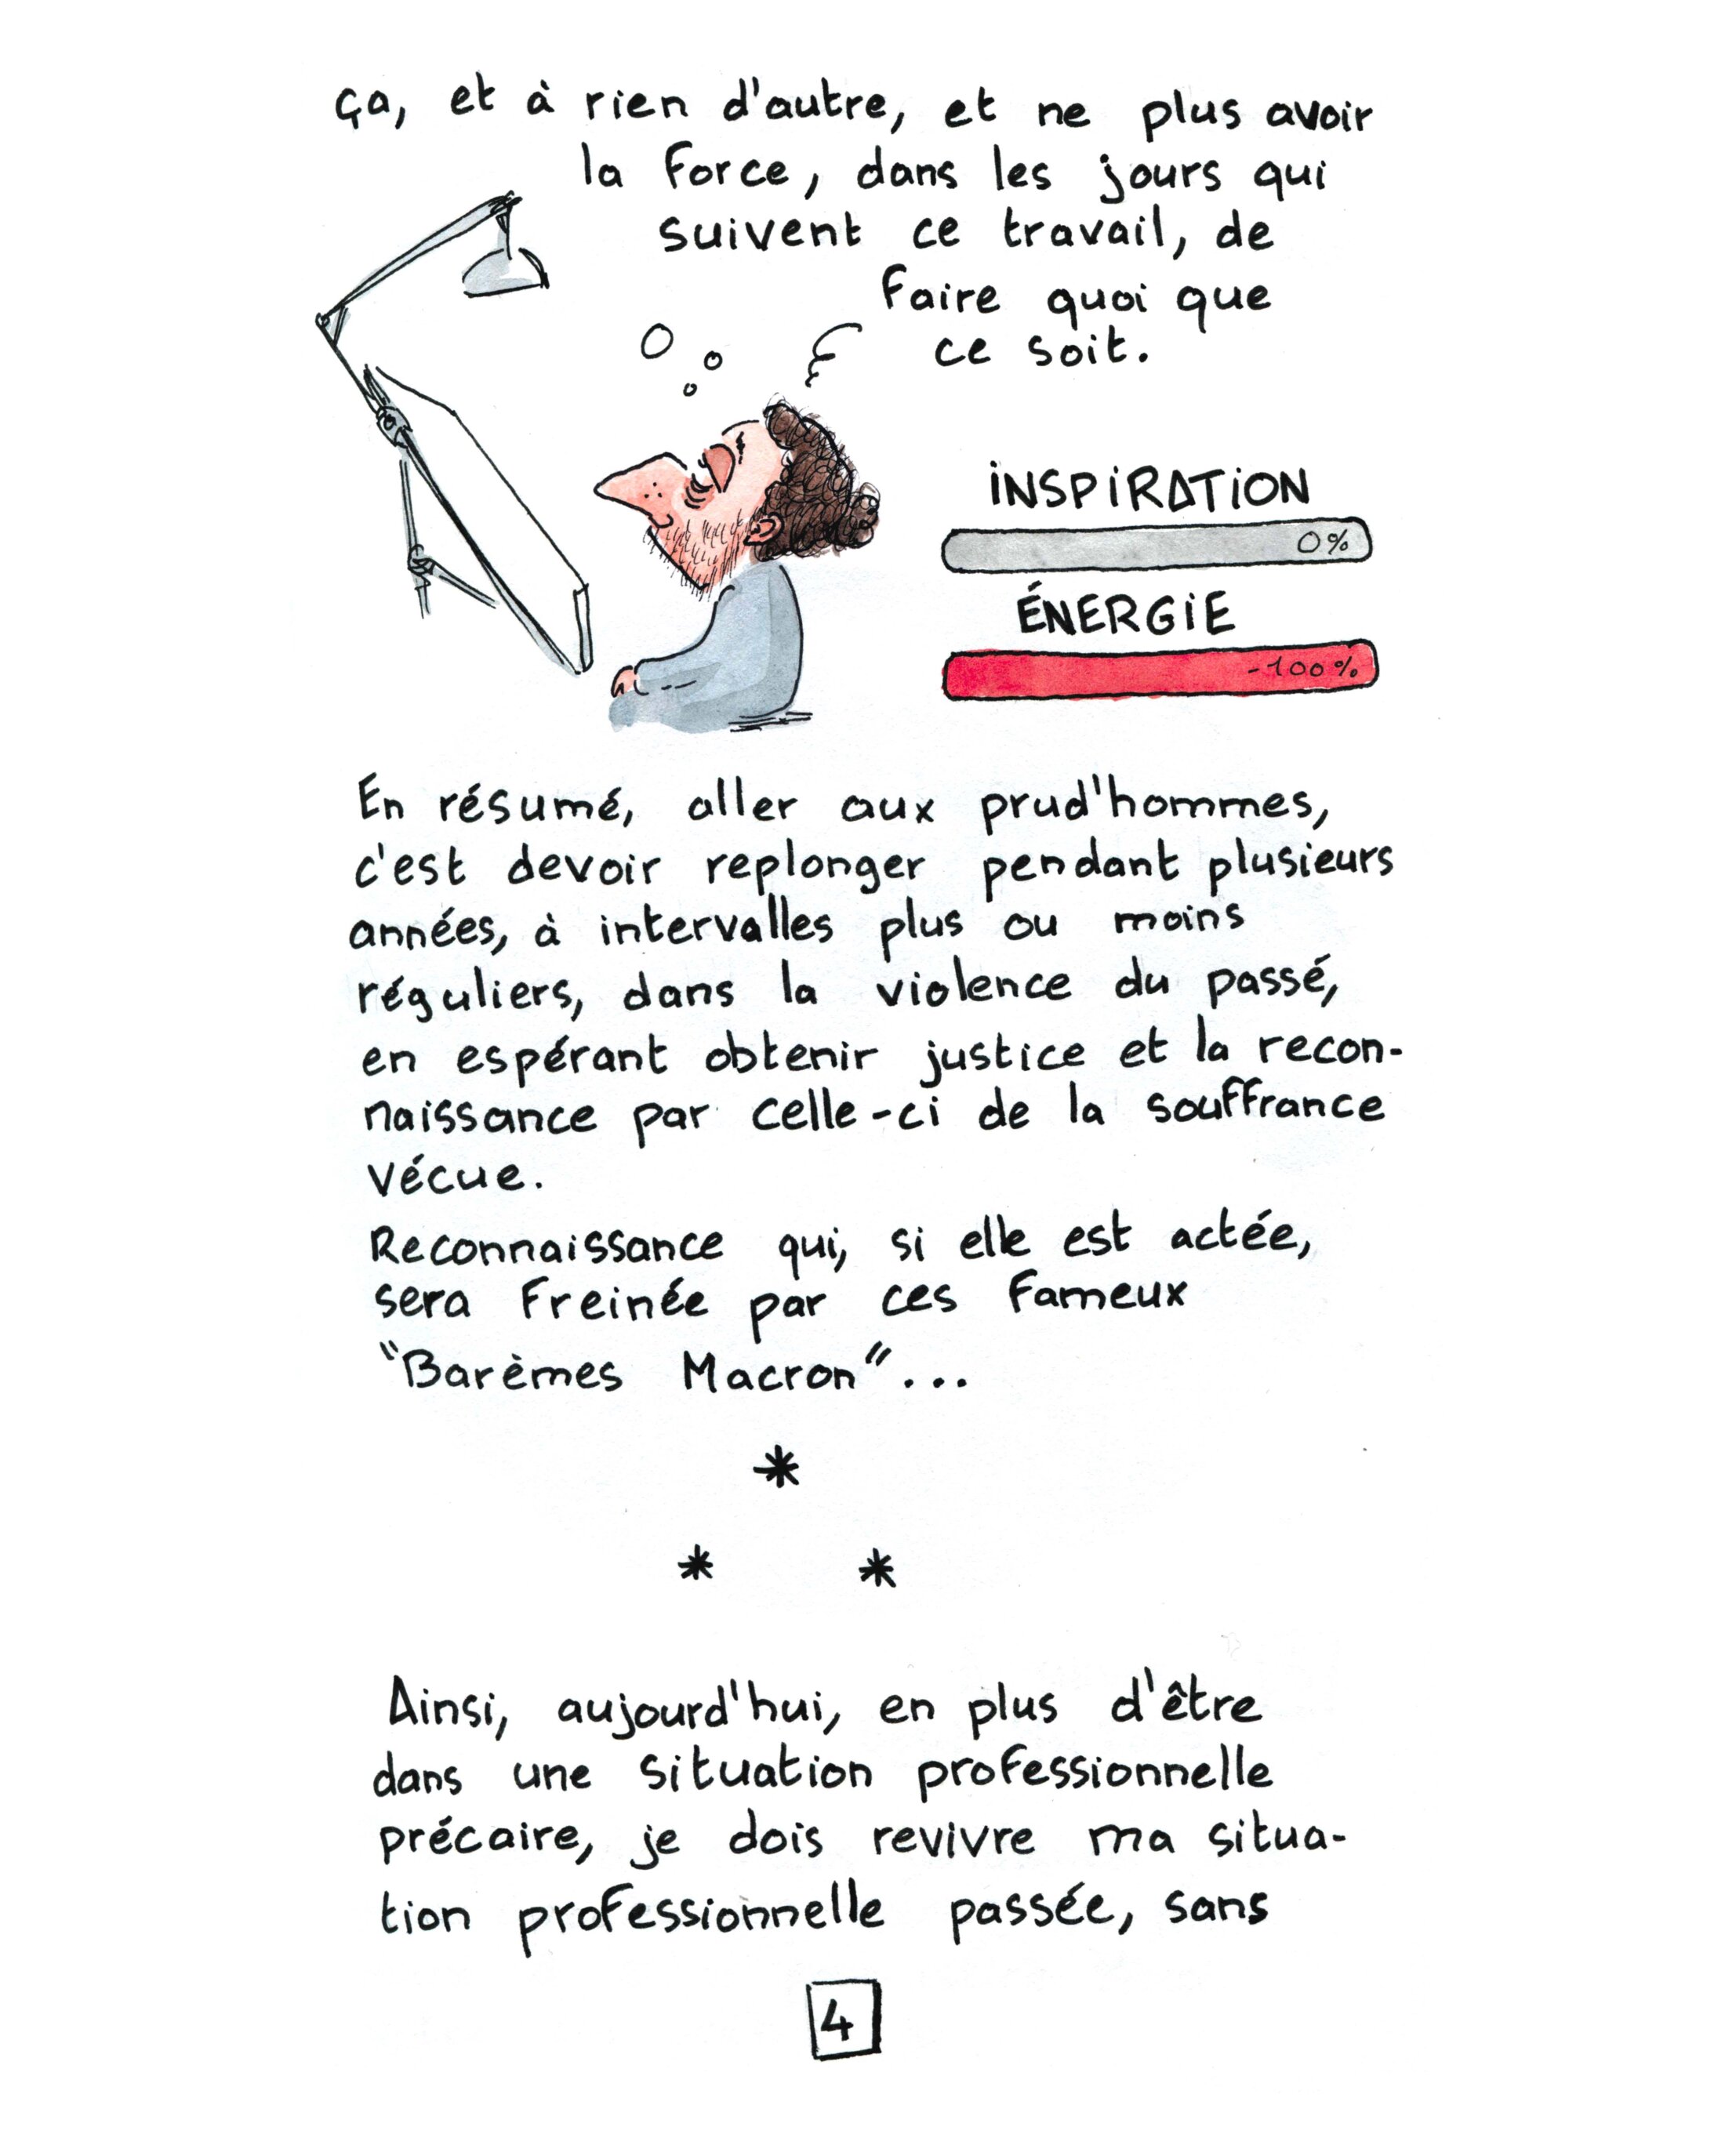 ça, et à rien d'autre, et ne plus avoir
la force, dans les jours qui
suivent ce travail, de
faire quoi que
ce soit.
iNSPiRATiON
0%
ÉNERGiE
-100%
En résumé, aller aux prud'hommes,
c'est devoir replonger pendant plusieurs
années, à intervalles plus ou moins
réguliers, dans la violence du passé,
en espérant obtenir justice et la recon-
naissance par celle-ci de la souffrance
vécue.
Reconnaissance qui, si elle est actée,
sera freinée par ces fameux
"Barèmes Macron"...
*
* *
Ainsi, aujourd'hui, en plus d'être
dans une situation professionnelle
précaire, je dois revivre ma situa-
tion professionnelle passée, sans
4